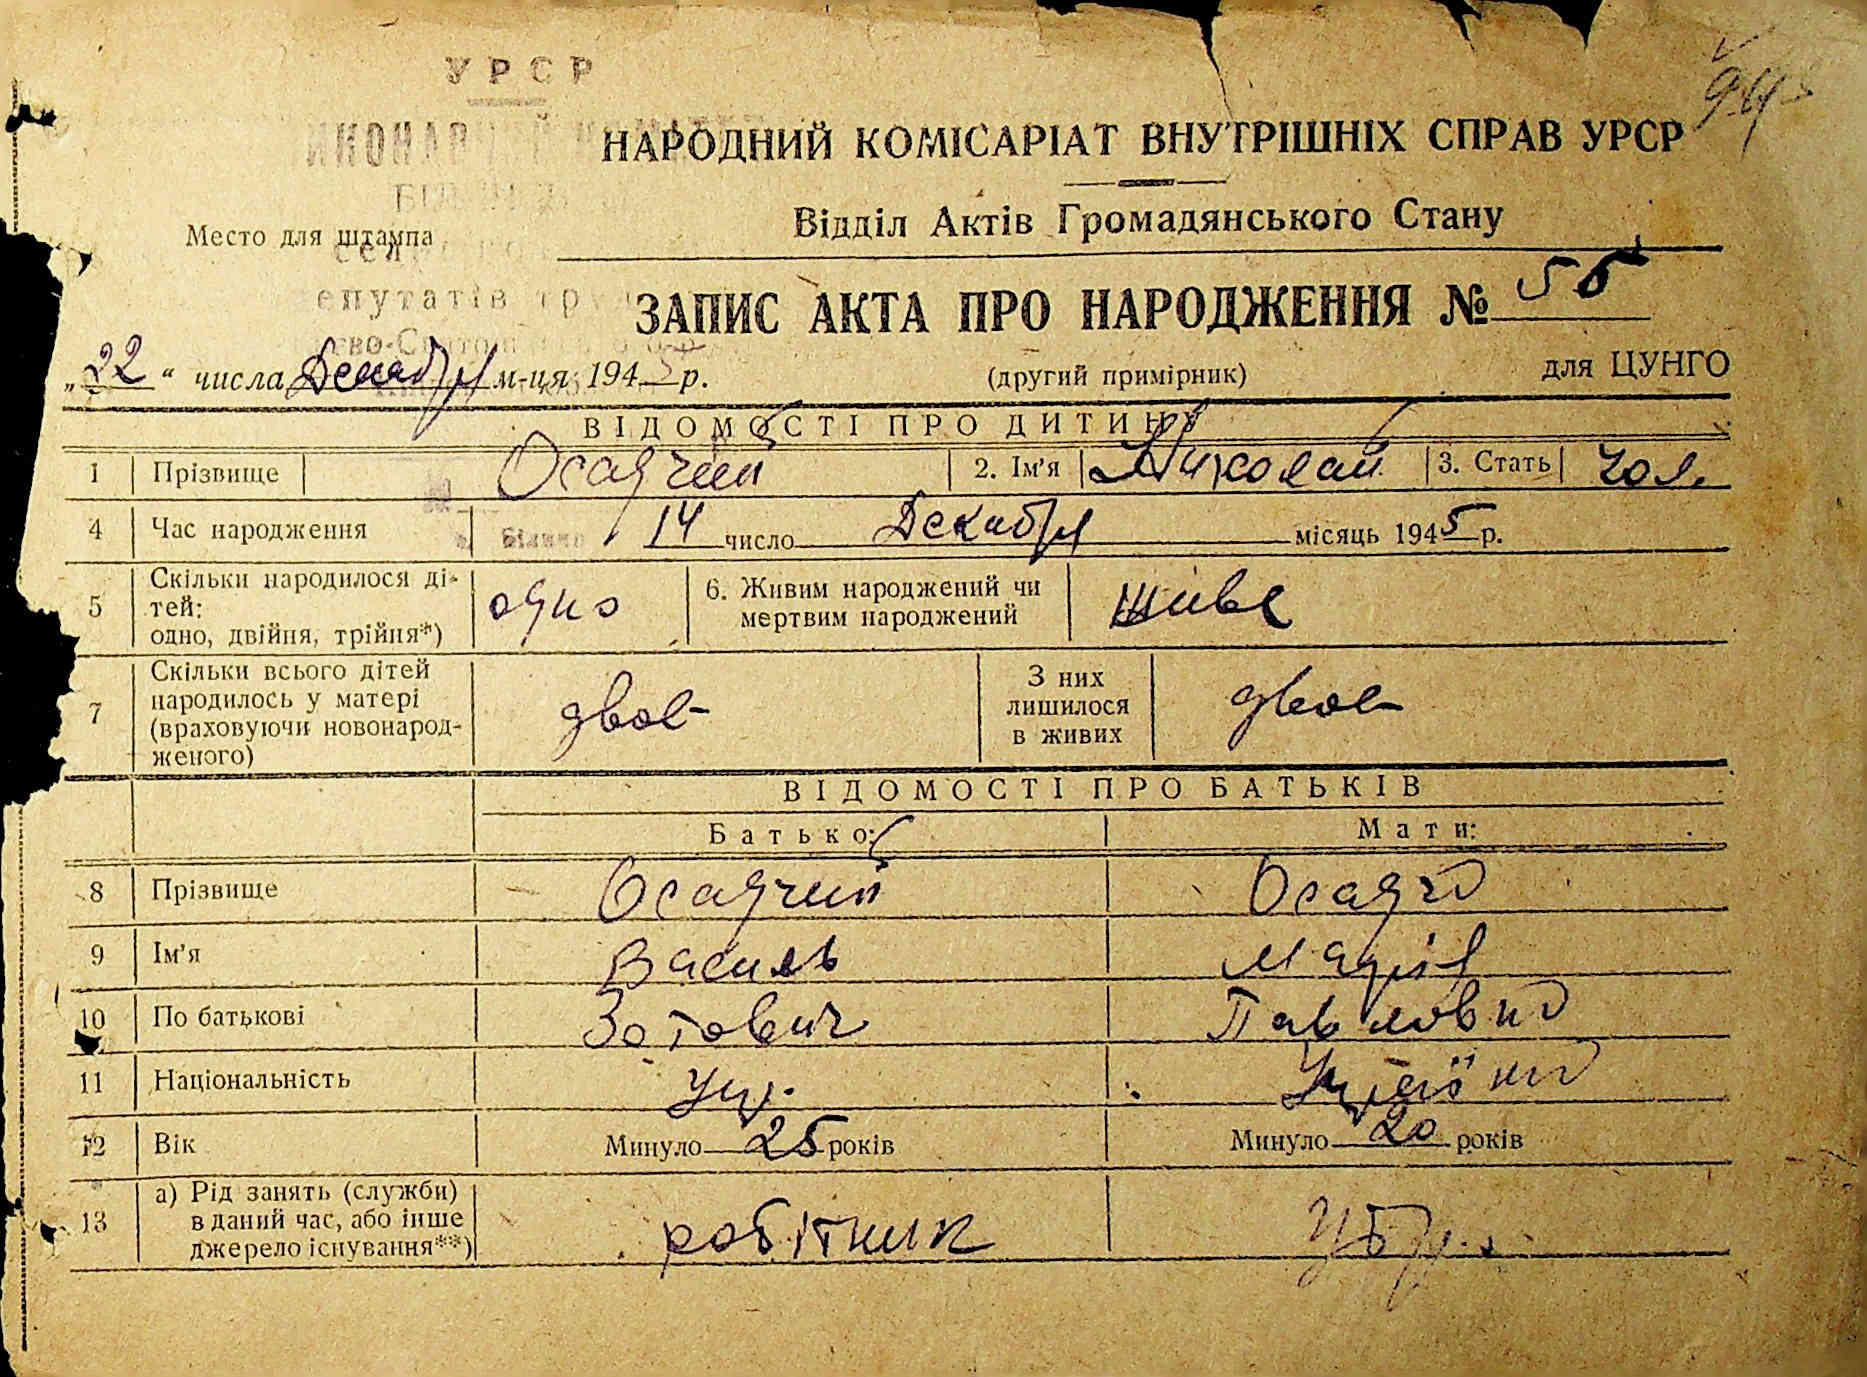 УРСР
НАРОДНИЙ КОМІСАРІАТ ВНУТРІШНІХ СПРАВ УРСР
Місто для штампа
Відділ Актів Громадянського Стану
ЗАПИС АКТА ПРО НАРОДЖЕННЯ № 56
„22“ числа Декабря м-ця 1945 р. (другий примірник) для ЦУНГО
ВІДОМОСТІ ПРО ДИТИНУ
1 Прізвище Осадчий 2. Ім'я Николай 3. Стать чол.
4 Час народження 14 число Декабря місяць 1945 р.
5 Скільки народилося ді-
тей:
одно, двійня, трійня*) одно 6. Живим народжений чи
мертвим народжений живе
7 Скільки всього дітей
народилось у матері
(враховуючи новонарод-
женого) двоє З них
лишилося
в живих двоє
ВІДОМОСТІ ПРО БАТЬКІВ
Батько: Мати:
8 Прізвище Осадчий Осадча
9 Ім'я Василь Марія
10 По батькові Зотович Павловна
11 Національність Укр. Україна
12 Вік Минуло 25 років Минуло 20 років
13 а) Рід занять (служби)
в даний час, або інше
джерело існування**) робітник